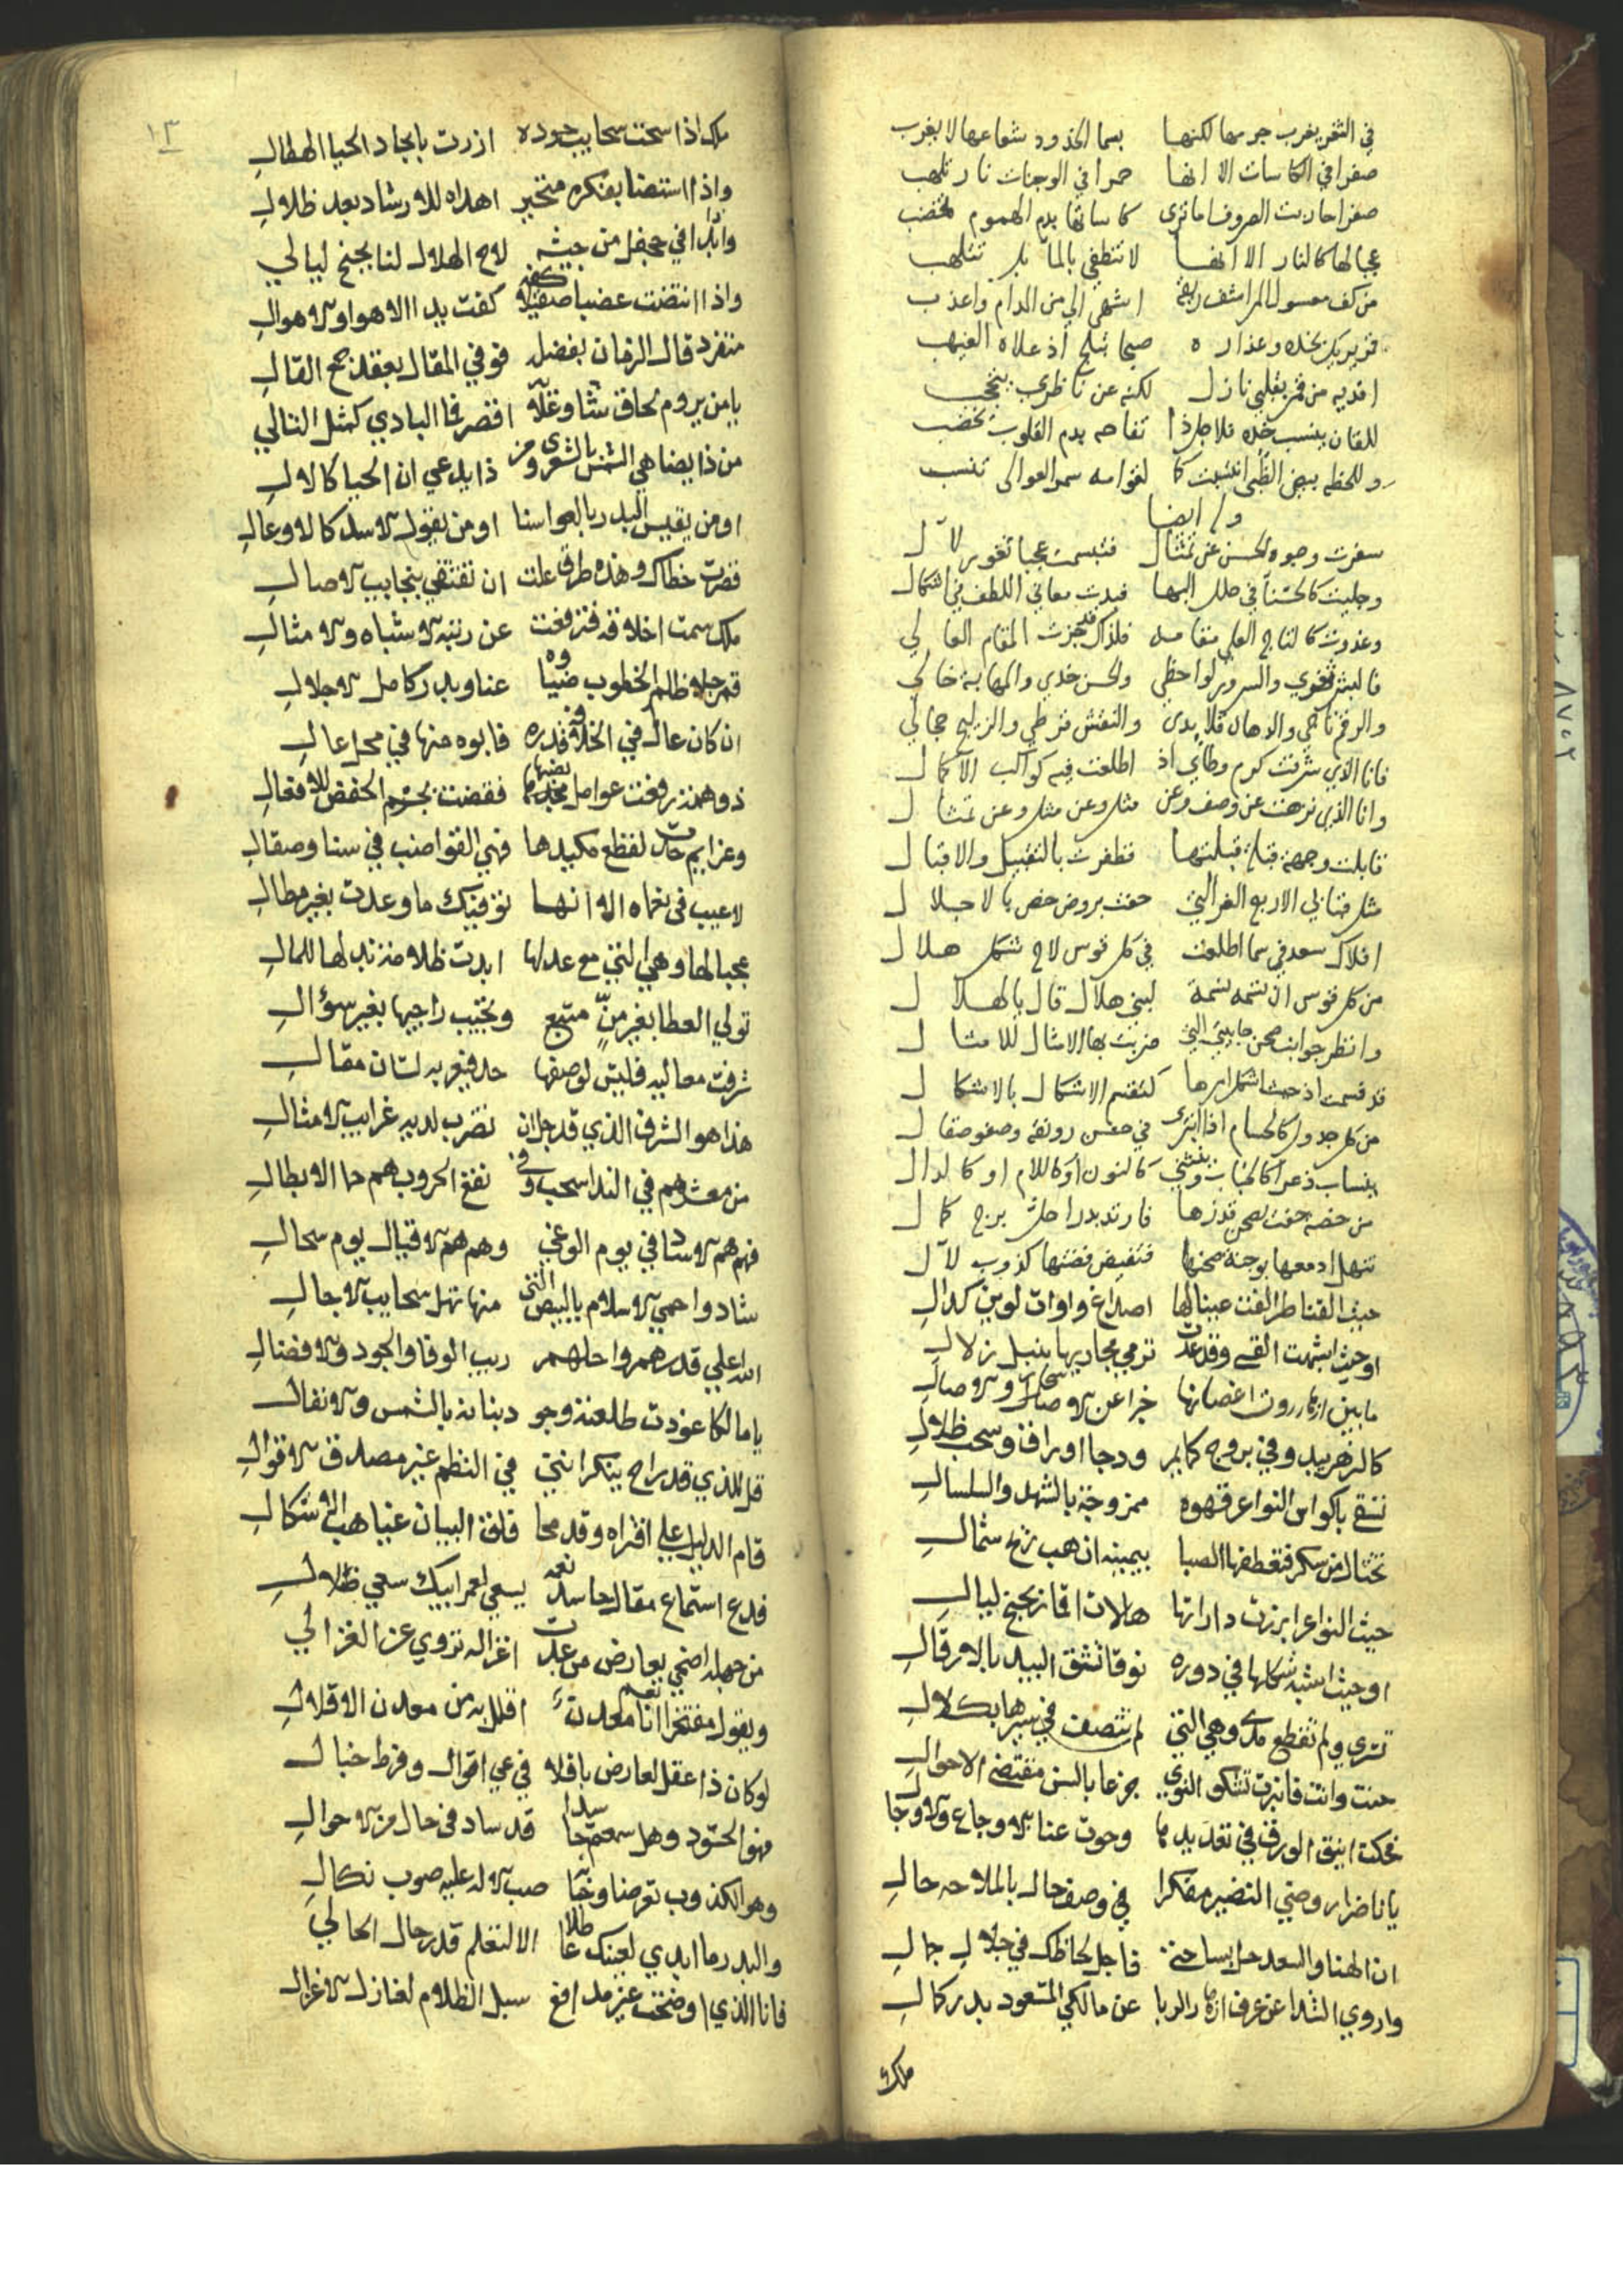 في الثغر يغرب جرمها لكنها بسما الخدود شعاعها لا يغرب
صفرا في الكاسات الا انها حمرا في الوجنات نار تلهب
صفرا حاربت الصروف اما ترى كاساتها بدم الهموم تخضب
عجبا لها كالنار الا انها لا تنطفي بالما بل تتلهب
من كف معسول المراشف ريقه اشهى الي من المدام واعذب
قمر يريك بخده وعذاره صبحا تبلج اذ علاه الغيهب
افديه من قمر بقلبي نازل لكنه عن ناظري يتحجب
للقان ينسب خده فلاجل ذا تفاحه بدم القلوب مخضب
وللحظه بيض الظبى انتسبت كما لقوامه سمر العوالي تنسب
وله ايضا
سفرت وجوه الحسن عن تمثال فتبسمت عجبا ثغور لآل
وجليت كالحسناء في حلل البها فبدت معاني اللطف في اشكال
وغدوت كالتاج العلي مقامه فلذاك حزت المقام العالي
فالبشر ثغري والسرور لواحظي والحسن خدي والمهابة خالي
والرقم تاجي والدهان قلايدي والنقش قرطي والزليج حجالي
فانا الذي شرفت كرم وطائي اذ اطلعت فيه كواكب الآكمال
وانا الذي نزهت عن وصف وعن مثل وعن مثل وعن تمثال
قابلت وجهة قبلة قبلتها فظفرت بالتقبيل والاقبال
مثل قنا بي الاربع الغر التي حفت بروض خص بالاجلال
افلاك سعد في سما اطلعت في كل قوس لاح شكل هلال
من كل قوس ان تسمه نسمة لبني هلال قال يا لهلال
وانظر جوانب صحن جابيتي التي ضربت بها الامثال للامثال
قد قسمت اذ حيث اشكل امرها كتقسم الاشكال بالاشكال
من كل جدول كالحسام اذا انبرى في حسن رونقه وصفو صقال
ينساب ذعرا كالحباب وينثني كالنون او كاللام او كالدال
من خصة حفت بصحن قد زها فارتد بدرا حل برج كمال
تنهل ادمعها بوجنة صحنها فتفيض فضتها كذوب لآل
حيث القناطر الفت عيناها اصداغ واوات لوين كدال
او حيث اشبهت القسي وقد غدت ترمي مجاريها بنبل زلال
ما بين ازهار روت اغصانها خبرا عن الاوصال والاوصال
كالزهر يبدو في بروج كمايم ودجا اوراق وسحب ظلال
تسقي باكواس النواعر قهوه ممزوجة بالشهد والسلسال
تختال من سكر فتعطفها الصبا بيمينه ان هب ريح شمال
حيث النواعر ابرزت داراتها هالات اقمار بجنح ليال
او حيث اشبه شكلها في دوره نوقا تشق البيد بالارقال
تسري ولم تقطع مدى وهي التي لم تتصف في سيرها بكلال
حنت وانت فانبرت تشكو النوى جزعا بالسن مقتضى الاحوال
فحكت اينق الورق في تعديدها وحوت عنا الاوجاع والاوجال
يا ناضرا روضي النضير مفكرا في وصف حال بالملاحه حال
ان الهنا والسعد حل بساحتي فاجل لحاظك في جلال جمال
واروي الشذا عن عرف ازهار الربا عن مالكي المسعود بدر كمال
ملك
١٣
ملك اذا سحت سحايب جوده ازرت بانجاد الحيا الهطال
واذا استضا بفكره متحير اهداه للارشاد بعد ظلال
واذا بدا في جحفل من جيشه لاح الهلال لنا بجنح ليالي
واذا انتضت عضبا صقيلا كفه كفت يد الاهوا والاهوال
متفرد قال الزمان بفضله قوفي المقال بعقد نجح القال
يا من يروم لحاق شأو علاه اقصر فما البادي كمثل التالي
من ذا يضاهي الشمس بالشعرى ومن ذا يدعي ان الحيا كالال
او من يقيس البدر بالعواسنا او من يقول الاسد كالاوعال
قصرت خطاك وهذه طرق علت ان تقتفى بنجايب الاصال
ملك سمت اخلاقه فترفعت عن رتبة الاشباه والامثال
قمر جلا ظلم الخطوب ضياوه عنا وبدر كامل الاجلال
ان كان عال في الخلافة قدره فابوه منها في محل عال
ذو همة رفعت عوامل نصبها فقضت بجزم الخفض للافعال
وعزايم حلت لفظع مكيدها فهي القواضب في سنا وصقال
لا عيب في نعماه الا انها توفيتك ما وعدت بغير مطال
عجبا لها وهي التي مع عدلها ابدت ظلامة زند لها للمال
تولي العطا بغير منّ متبع وتجيب راجيها بغير سؤال
شرفت معاليه فليس لوصفها حد فيعربه لسان مقال
هذا هو الشرف الذي قد جل ان تضرب لديه غرايب الامثال
من معشر هم في الندا سحب وفي نقع الحروب هم حما الابطال
فهم هم الاساد في يوم الوغى وهم هم الاقيال يوم سجال
شادوا حمى الاسلام بالبيض التي منها تهل سحايب الاجال
الله اعلى قدرهم واحلهم ريب الوفا والجود والافضال
يا مالكا عوذت طلعته وجود بنانه بالشمس والانفال
قل للذي قد راح ينكر انني في النظم غير مصدق الاقوال
قام الدليل على افتراه وقد محا فلق البيان غياهب الاشكال
فدع استماع مقال حاسد نعمة يسعى لعمر ابيك سعي ضلال
من جهله اضحى يعارض من غدت اغزاله تروي عن الغزالي
ويقول مفتخرا انا معدن نعم اقلل به من معدن الاقلال
لو كان ذا عقل لعارض باقلا في عي اقوال وفرط خبال
فهو الحسود وهل سمعتم حاسدا قد ساد في حال من الاحوال
وهو الكذوب تعرضا وتجنبا صب الاله عليه صوب نكال
والبدر ما ابدى لعينك عاطلا الا لتعلم قدر حال الحالي
فانا الذي اوضحت غير مدافع سبل الظلام لغازل الاغزال